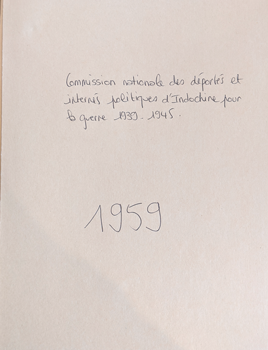 Commission nationale des déportés et
internés politiques d'Indochine pour
la guerre 1939-1945.
1959